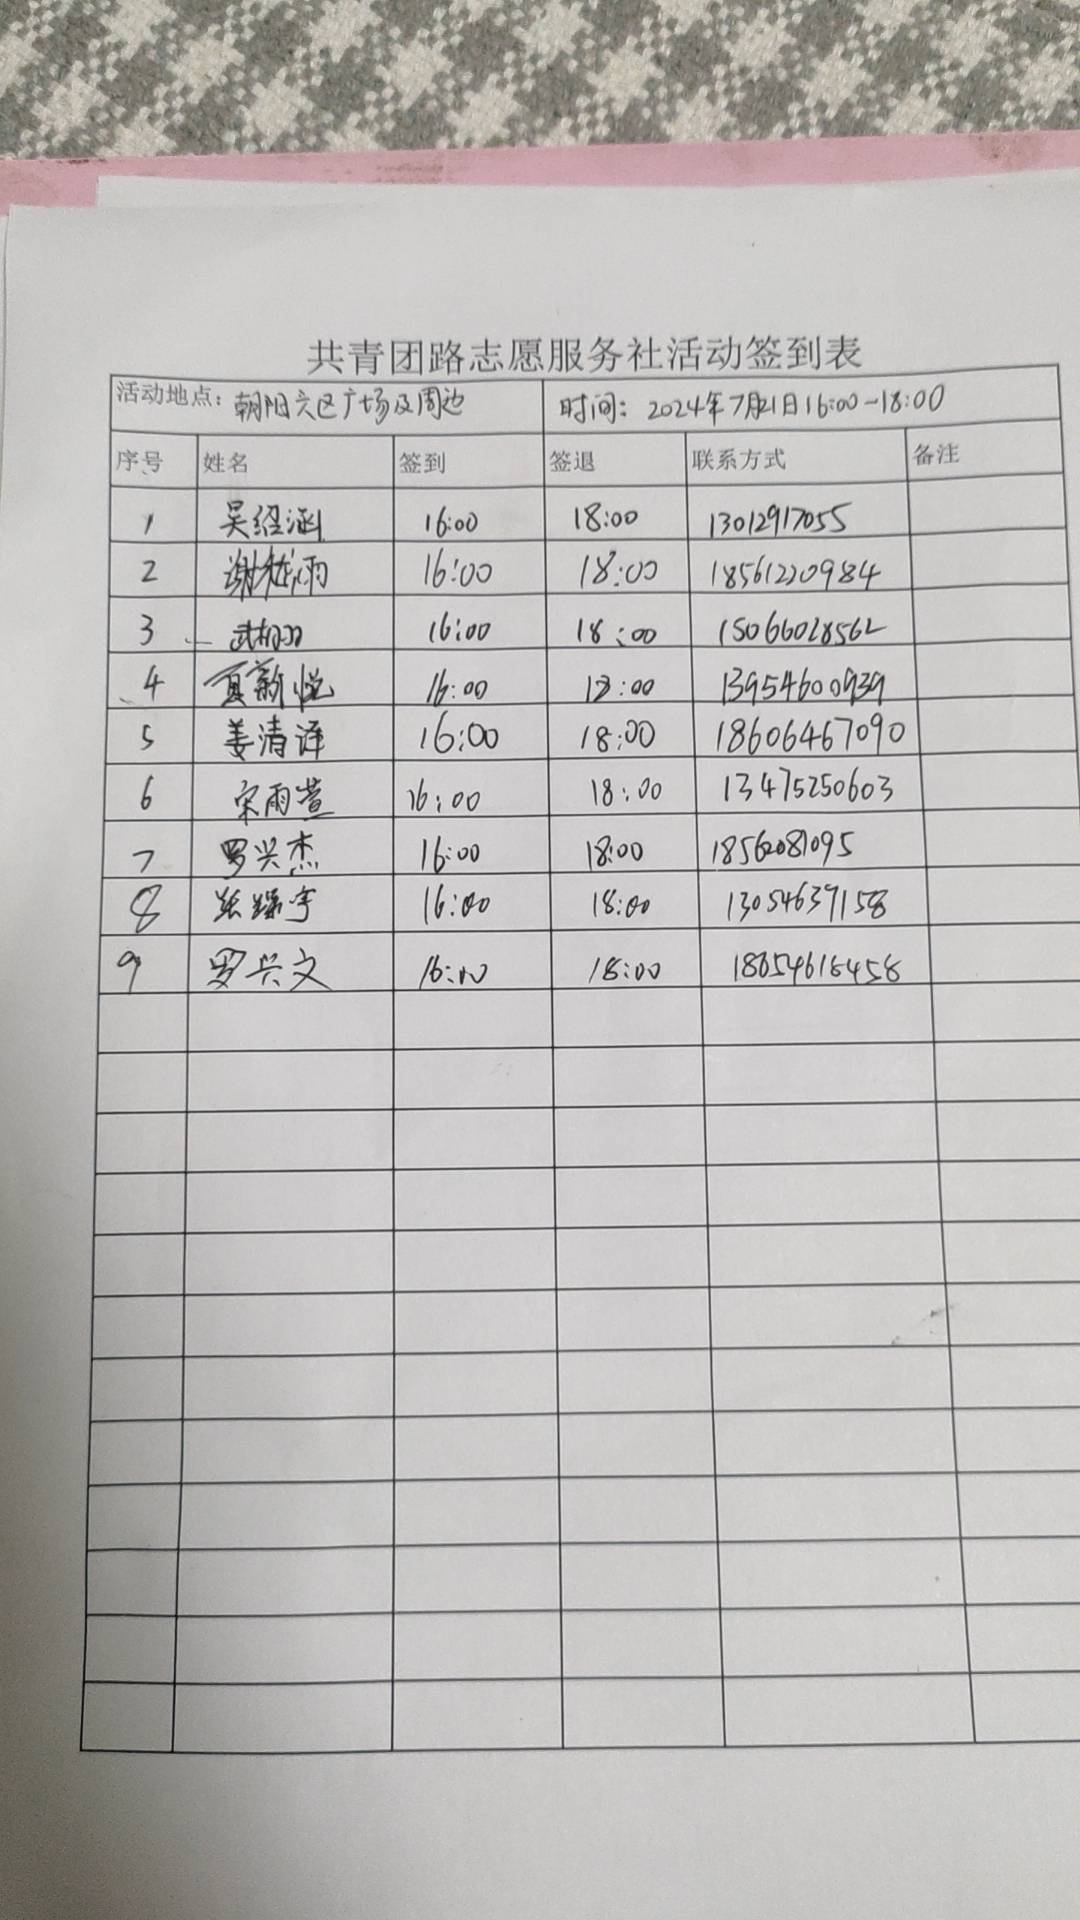 共青团路志愿服务社活动签到表
活动地点：朝阳六区广场及周边 时间：2024年7月21日16:00-18:00
序号 姓名 签到 签退 联系方式 备注
1 吴绍涵 16:00 18:00 13012917055
2 谢 雨 16:00 18:00 18561220984
3 武 16:00 18:00 15066028562
4 夏新悦 16:00 18:00 13954600939
5 姜清译 16:00 18:00 18606467090
6 宋雨萱 16:00 18:00 13475250603
7 罗兴杰 16:00 18:00 18562081095
8 张 宇 16:00 18:00 13054639158
9 罗兴文 16:00 18:00 18654618458